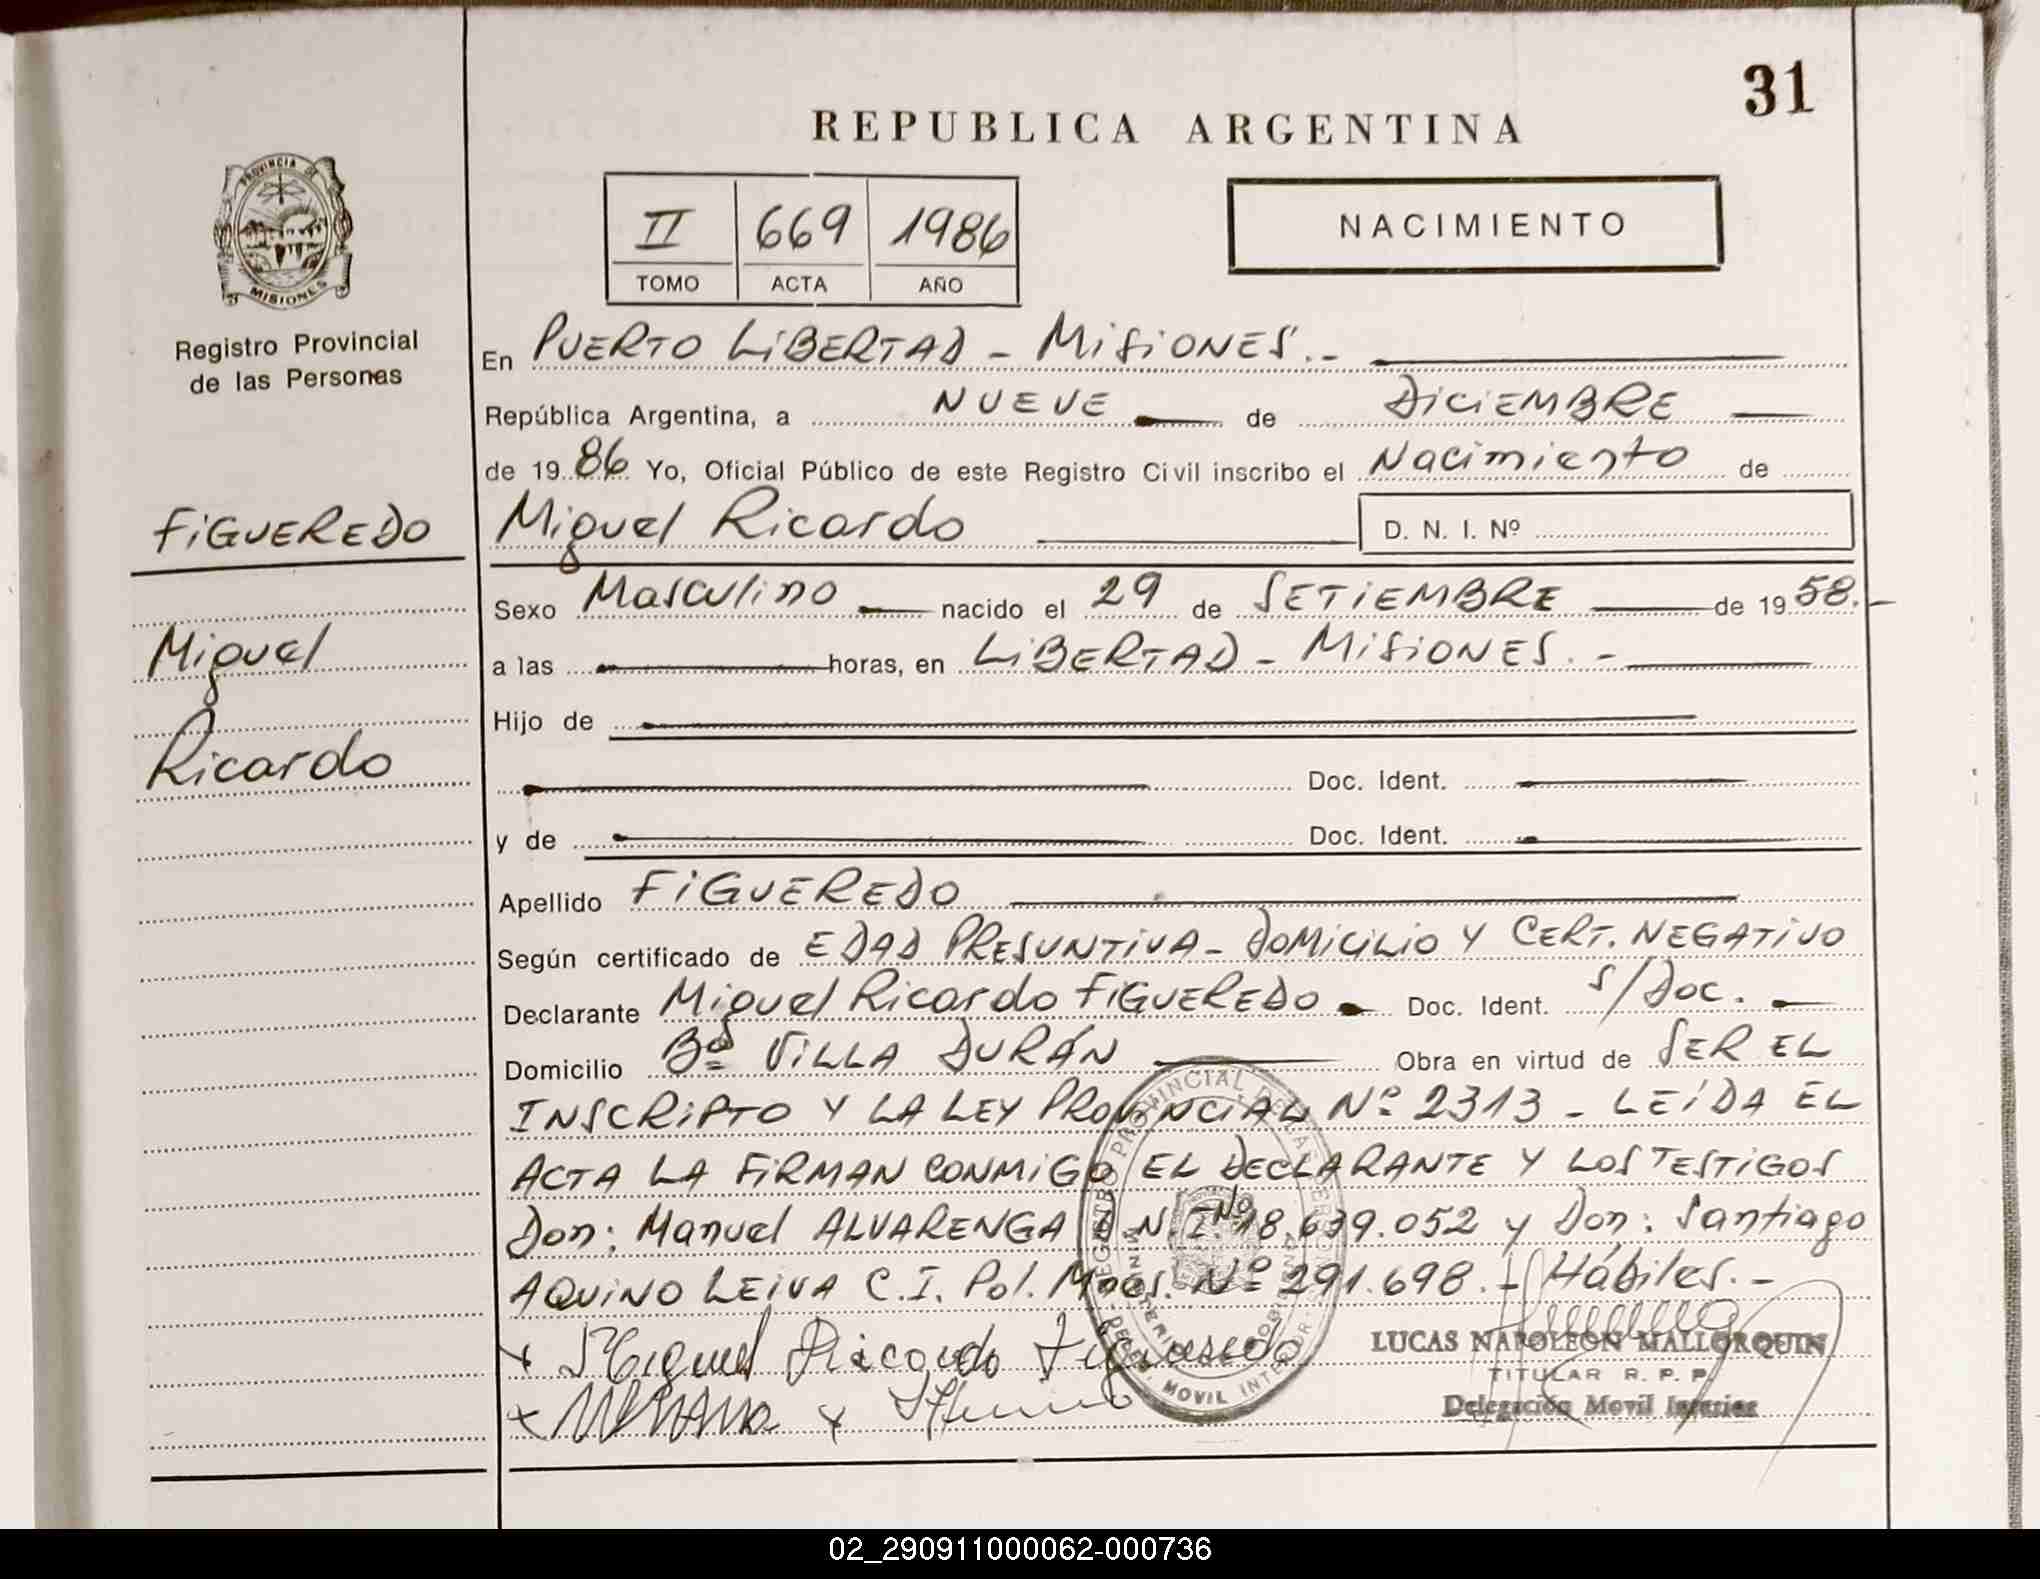 31
REPUBLICA ARGENTINA
PROVINCIA DE
MISIONES
Registro Provincial
de las Personas
II 669 1986
TOMO ACTA AÑO
NACIMIENTO
En PUERTO LIBERTAD - MISIONES.-
República Argentina, a NUEVE de DICIEMBRE
de 1986 Yo, Oficial Público de este Registro Civil inscribo el Nacimiento de
FIGUEREDO
Miguel Ricardo D. N. I. Nº
Sexo Masculino nacido el 29 de SETIEMBRE de 1958.-
Miguel
a las horas, en LIBERTAD - MISIONES.-
Hijo de
Ricardo
Doc. Ident.
y de Doc. Ident.
Apellido FIGUEREDO
Según certificado de EDAD PRESUNTIVA - DOMICILIO Y CERT. NEGATIVO
Declarante Miguel Ricardo FIGUEREDO Doc. Ident. S/Doc.
Domicilio Bº VILLA DURÁN Obra en virtud de SER EL
INSCRIPTO Y LA LEY PROVINCIAL Nº 2313 - LEÍDA EL
ACTA LA FIRMAN CONMIGO EL DECLARANTE Y LOS TESTIGOS
Don: Manuel ALVARENGA D.N.I. Nº 18.639.052 y Don: Santiago
AQUINO LEIVA C.I. Pol. Mnes. Nº 291.698.- Hábiles.-
x Miguel Ricardo Figueredo
LUCAS NAPOLEON MALLORQUIN
TITULAR R. P. P.
Delegación Movil Interior
x x
02_290911000062-000736